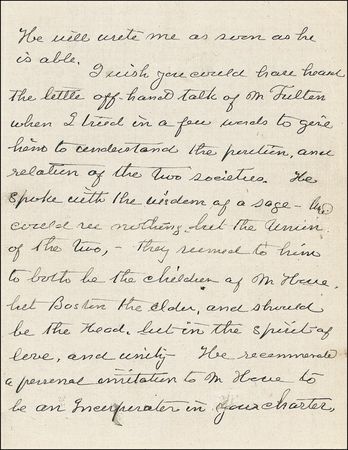 He will write me as soon as he
is able.
I wish you could have heard
the little off-hand talk of Mr Fulton
when I tried in a few words to give
him to understand the position, and
relation of the two societies. He
spoke with the wisdom of a sage - He
could see nothing but the Union
of the two, - they seemed to him
to both be the children of Mr Howe.
but Boston the elder, and should
be the Head, but in the spirit of
love, and unity He recommends
a personal invitation to Mr Howe to
be an Incorporator in your charter,